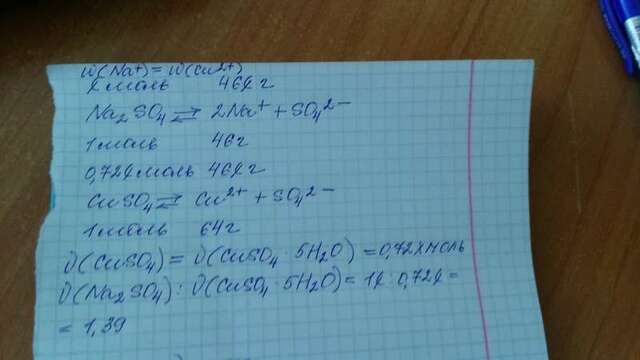 ω(Na⁺) = ω(Cu²⁺)
x моль 46x г
Na₂SO₄ ⇄ 2Na⁺ + SO₄²⁻
1 моль 46 г
0,72x моль 46x г
CuSO₄ ⇄ Cu²⁺ + SO₄²⁻
1 моль 64 г
ν(CuSO₄) = ν(CuSO₄ · 5H₂O) = 0,72x моль
ν(Na₂SO₄) : ν(CuSO₄ · 5H₂O) = 1x : 0,72x =
= 1,39